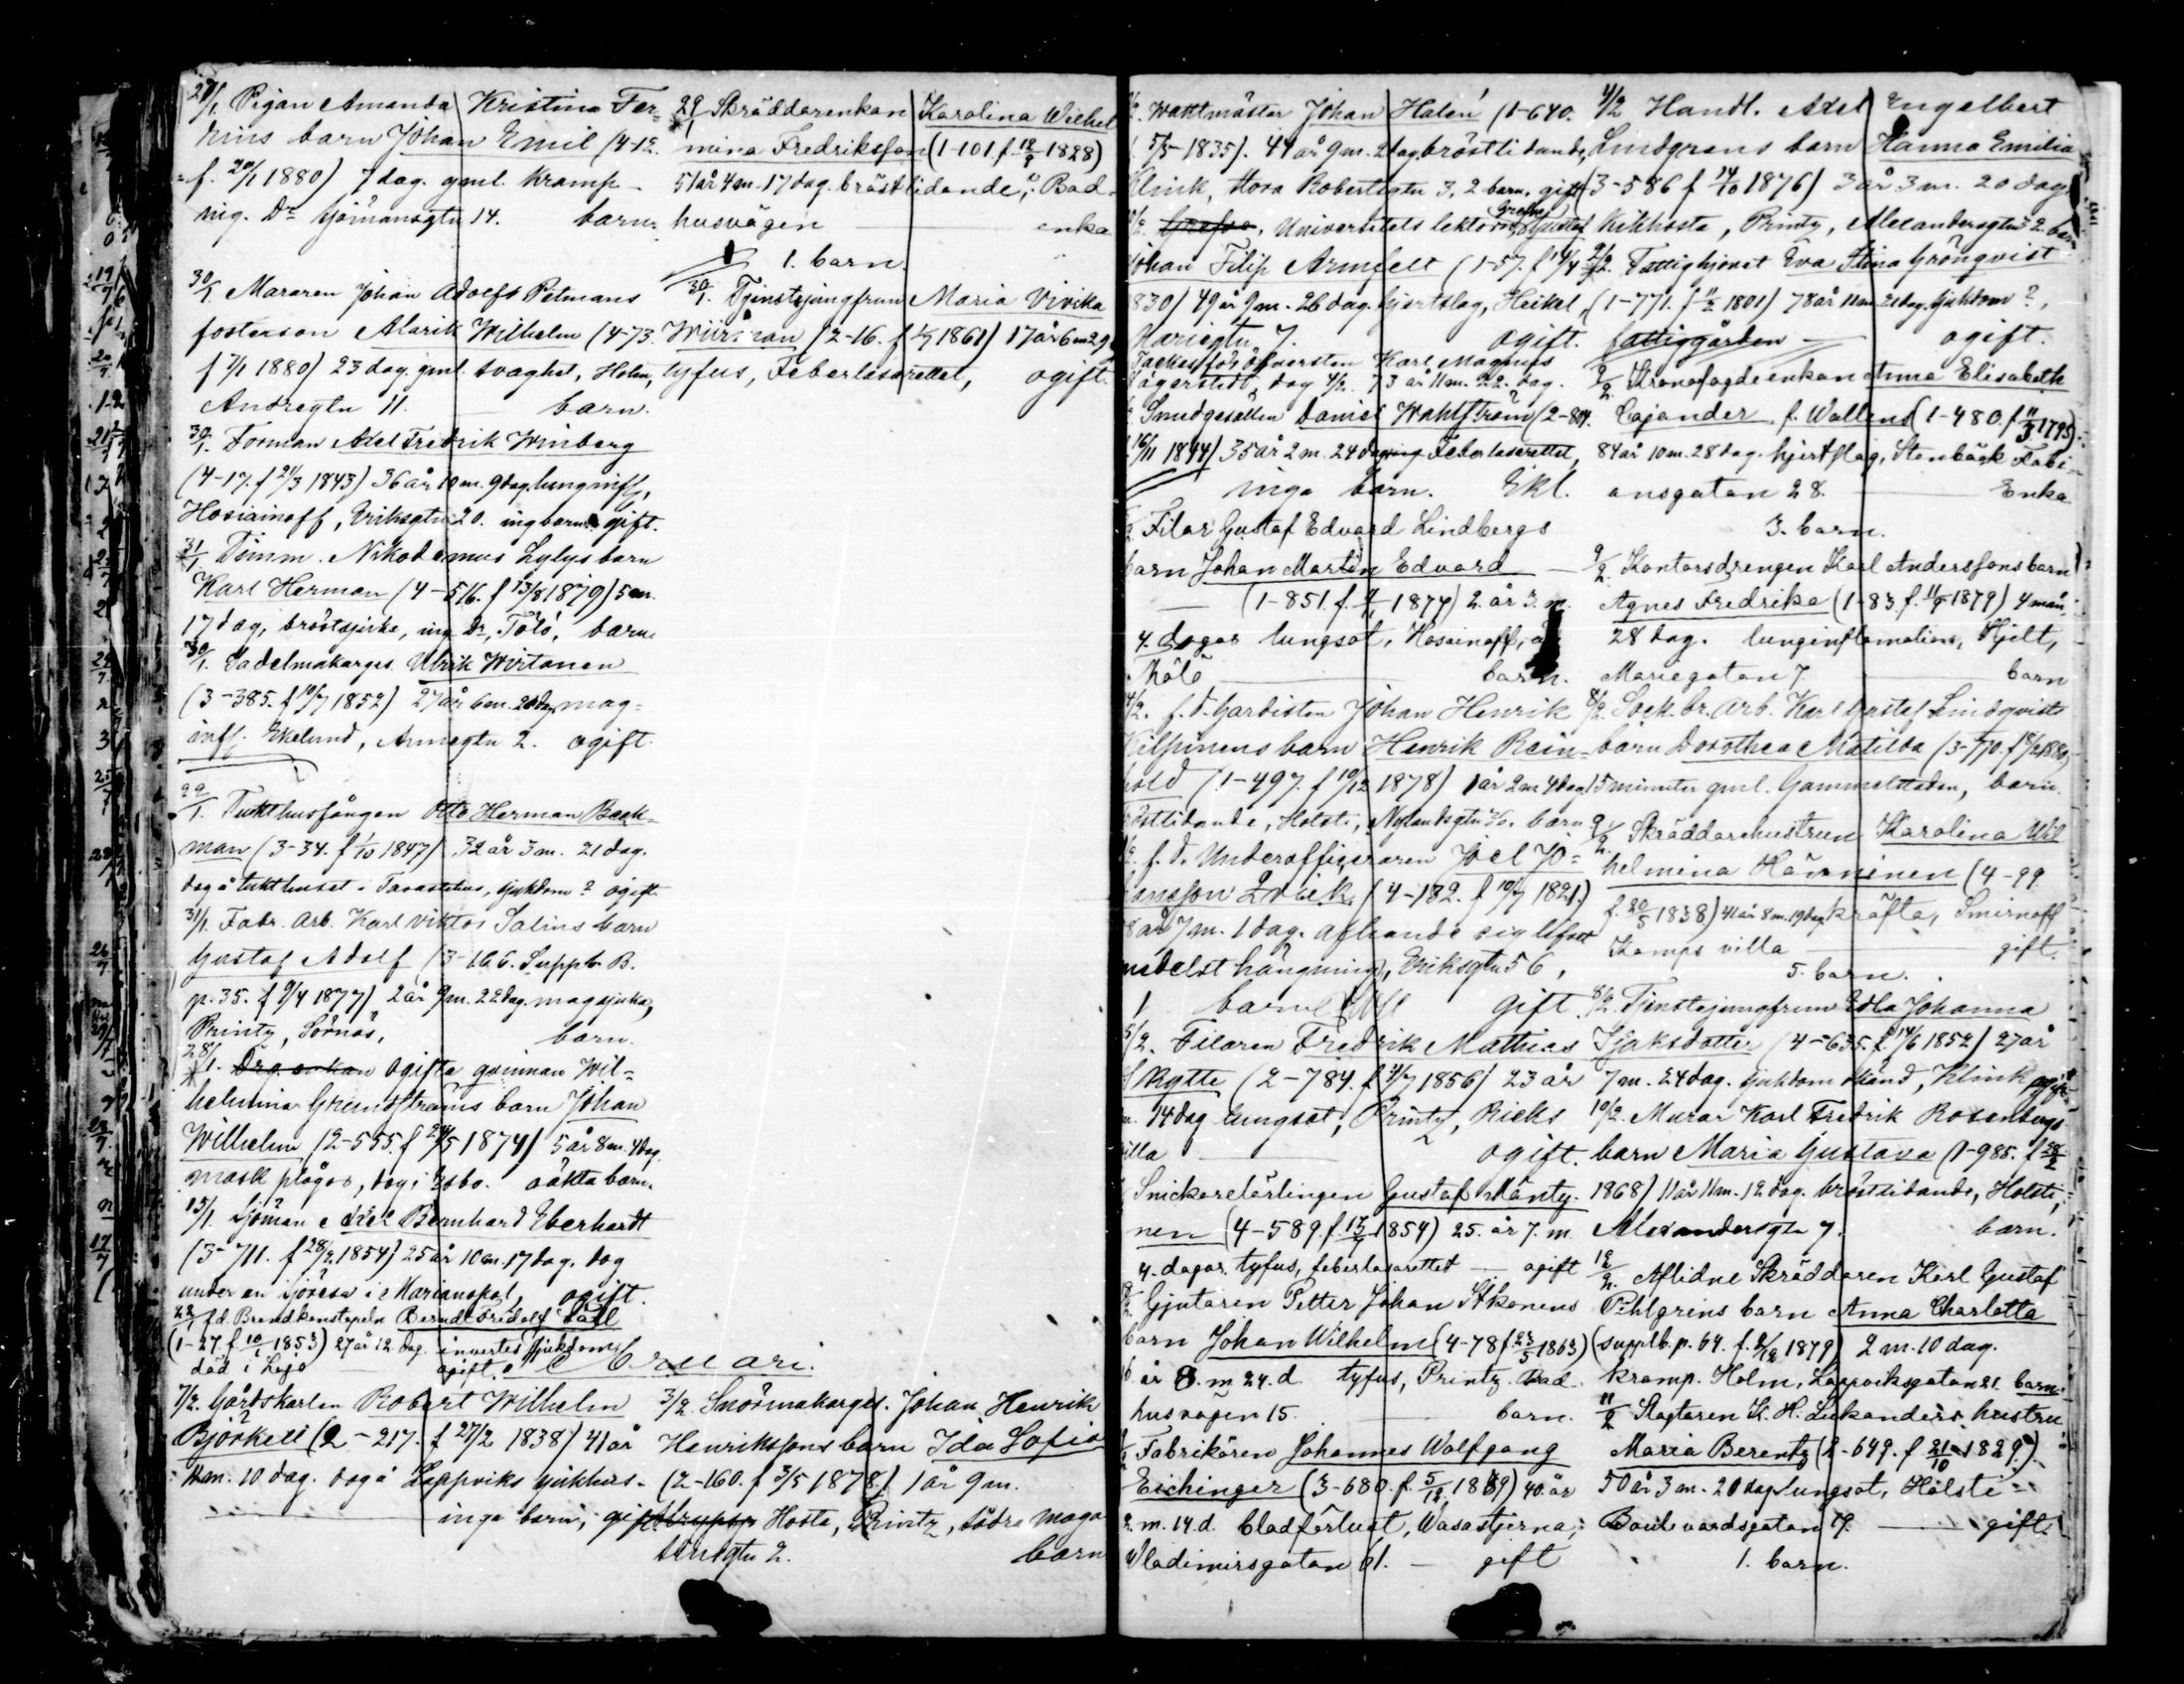 27/1 Pigan Amanda Kristina Fer=
nins barn Johan Emil (4-12.
f. 20/1 1880) 7 dag. gml. Kramp
ing. Dr Hjömansgtn 14. barn.
30/1 Muraren Johan Adolfs Petmans
fosterson Alarik Wilhelm (4-73.
f 7/1 1880) 23 dag. gml. svaghet, Holm,
Andregtn 11. barn.
30/1. Forman Axel Fredrik Winberg
(4-17. f 21/3 1843) 36 år 10 m. 9 dag. lunginfl,
Hosiainoff, Eriksgtn 20. ing barn gift.
31/1 Timm. Nikodemus Lylys barn
Karl Herman (4-516. f 13/8 1879) 5 m.
17 dag, bröstsjuka, ing Dr, Tölö, barn.
30/1. Sadelmakarges. Ulrik Wirtanen
(3-385. f 10/7 1852) 27 år 6 m. 20 dag mag=
infl. Ekelund, Annegtn 2. ogift.
22/1. Tukthusfången Otto Herman Back=
man (3-34. f 1/10 1847) 32 år 3 m. 21 dag.
dog å tukthuset i Tavastehus, sjukdom? ogift
31/1 Fabr. Arb. Karl Viktor Salins barn
Gustaf Adolf (3-166. Supplb B.
p. 35. f 9/4 1877) 2 år 9 m. 22 dag. magsjuka,
Printz, Sörnäs, barn.
28/1. Drg. enkan Ogifta qvinnan Wil=
helmina Grundströms barn Johan
Wilhelm (2-555. f 24/5 1874) 5 år 8 m. 4 dag.
mask plågor, dog i Esbo. oäkta barn.
15/1. Sjöman Axel Bernhard Eberhardt
(3-711. f 28/2 1854) 25 år 10 m. 17 dag. dog
under en sjöresa i Marianopol, ogift.
22/1 f.d. Brandkonstapeln Berndt Fridolf Säll
(1-27. f 10/1 1853) 27 år 12. dag. invertes sjukdom
död i Lojo ogift.
29/1 Skräddarenkan Karolina Wilhel
mina Fredriksson (1-101. f 12/9 1828)
51 år 4 m. 17 dag. bröstlidande, Bad
husvägen enka
1. barn.
30/1. Tjenstejungfrun Maria Vivika
(2-16. f 1/7 1861) 17 år 6 m 29
tyfus, Feberlasarettet, ogift.
Februari.
7/2. Gårdskarlen Robert Wilhelm
Björkell (2-217. f 27/2 1838) 41 år
11 m. 10 dag. dog å Lappviks sjukhus.
inga barn, gift
3/2. Snörmakarges. Johan Henrik
Henrikssons barn Ida Sofia
(2-160. f 3/5 1878) 1 år 9 m.
Hosta, Printz, södra Maga
sinsgtn 2. barn
Waktmäster Johan Halén (1-640.
5/5 1835). 44 år 9 m. 2 dag bröstlidande,
Klink, stora Robertsgtn 3, 2 barn. gift
Grefve, Universitets lektorn, Grefve Gustaf
Johan Filip Armfelt (1-57. f 14/4
1830) 49 år 9 m. 26 dag. hjertslag, Heikel,
Mariegtn 7. ogift.
Karl Magnus
Lagerstedt, dog 4/2. 73 år 11 m. 22. dag.
Smedgesällen Daniel Wahlström (2-804.
16/11 1844) 35 år 2 m. 24 dag ing Feberlasarettet,
inga barn. Ekl.
Filar Gustaf Edvard Lindbergs
barn Johan Martin Edvard
(1-851. f. 1877) 2. år 3. m.
4. dagar lungsot, Hosainoff,
Tölö barn.
4/2. f.d. Gardisten Johan Henrik
Kilpinens barn Henrik Rein=
hold (1-497. f 10/12 1878) 1 år 2 m 4 dag
bröstlidande, Holsti, Nylandsgtn barn
f.d. Underofficeraren Joel Jo=
hansson Zweik (4-182. f 10/7 1821.)
58 år 7 m. 1 dag. afhände sig lifvet
medelst hängning, Eriksgtn 56,
1 barn gift
5/2. Filaren Fredrik Mathias
Rytte (2-784. f 21/7 1856) 23 år
m. 14 dag lungsot, Printz, Ricks
villa ogift.
Snickarelärlingen Gustaf Mänty-
nen (4-589 f. 1854) 25. år 7. m.
4. dagar. tyfus, feberlasarettet ogift
Gjutaren Petter Johan Itkonens
barn Johan Wilhelm (4-78 f 23/5 1863)
16 år 8. m 24. d tyfus, Printz. Bad
husvägen 15. barn.
Fabrikören Johannes Wolfgang
Eichinger (3-680. f. 5/12 1839) 40. år
2. m. 14. d. blodförlust, Wasastjerna,
Wladimirsgatan 61. gift
4/2 Handl. Axel Engelbert
Lindgrens barn Hanna Emilia
(3-586 f 14/10 1876) 3 år 3 m. 20 dag
Kikhosta, Printz, Alexandersgtn 32 barn
9/2. Fattighjonet Eva Stina Grönqvist
(1-771. f 11/2 1801) 78 år 11 m. 21 dag. sjukdom?,
fattiggården ogift.
9/2 Kronofogdeenkan Anna Elisabeth
Cajander, f. Wallens (1-480. f 11/3 1795)
84 år 10 m. 28 dag. hjertslag, Stenbäck Fabi-
ansgatan 28. Enka
3. barn.
9/2. Kontorsdrengen Karl Anderssons barn
Agnes Fredrika (1-83. f. 11/9 1879) 4 mån
28 dag. lunginflamation, Hjelt,
Mariegatan 7 barn
8/2. Sock. br. Arb. Karl Gustaf Lindqvists
barn Dorothea Matilda (3-770. f 8/2 1880)
15 minuter gml. Gammelstaden, barn.
9/2. Skräddarehustrun Karolina Wil
helmina Häminen (4-99
f. 20/5 1838) 41 år 8 m. 19 dag kräfta, Smirnoff
Kamps villa gift.
5. barn.
8/2. Tjenstejungfrun Edla Johanna
Isaksdotter (4-635. f. 14/6 1852) 27 år
7 m. 24 dag. sjukdom okänd, Klink ogift
10/2. Murar Karl Fredrik Rosenbergs
barn Maria Gustava (1-985. f 28/2
1868) 11 år 11 m. 12 dag. bröstlidande, Holsti,
Alexandersgtn 7. barn.
12/2. Aflidne Skräddaren Karl Gustaf
Pihlgrens barn Anna Charlotta
(supplb. p. 64. f. 2/12 1879) 2 m. 10 dag.
kramp. Holm, Lappviksgatan 21. barn.
11/2 Slagtaren K. H. Lukanders hustru
Maria Berentz (2-649. f 21/10 1829.)
50 år 3 m. 20 dag lungsot, Holsti
Boulevardsgatan 19. gift.
1. barn.